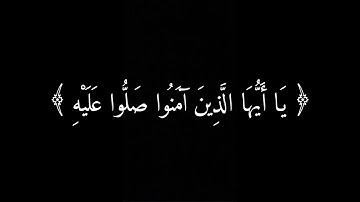 ﴿ يَا أَيُّهَا الَّذِينَ آمَنُوا صَلُّوا عَلَيْهِ ﴾